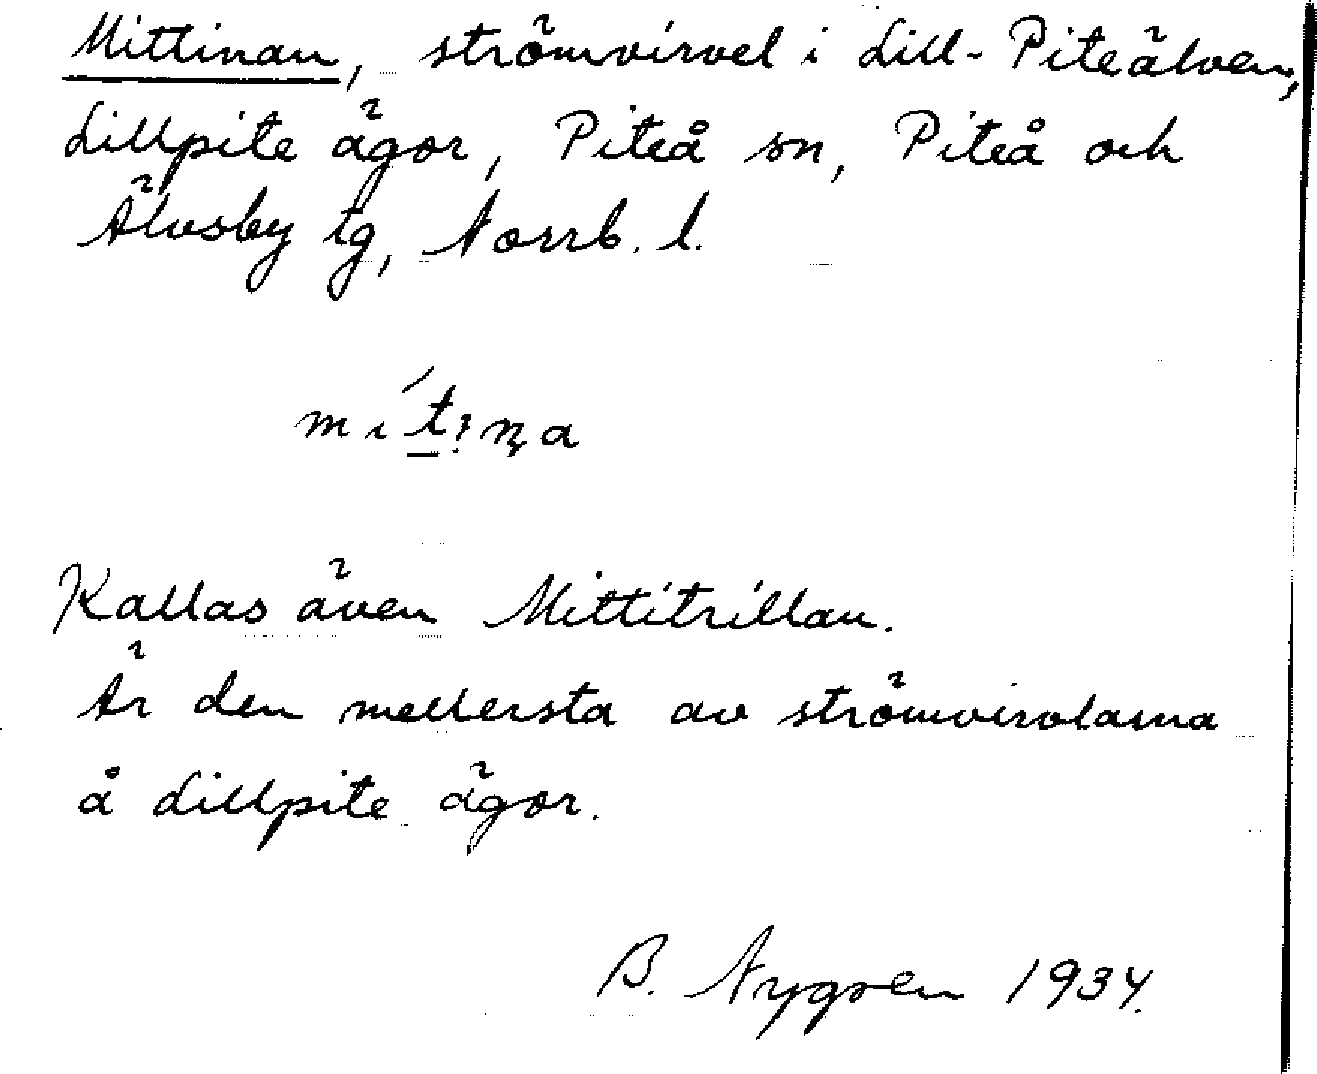 Mittinan, strömvirvel i Lill-Piteälven,
Lillpite ägor, Piteå sn, Piteå och
Älvsby tg, Norrb. l.
Kallas även Mittitrillan.
Är den mellersta av strömvirvlarna
å Lillpite ägor.
B. Nygren 1934.